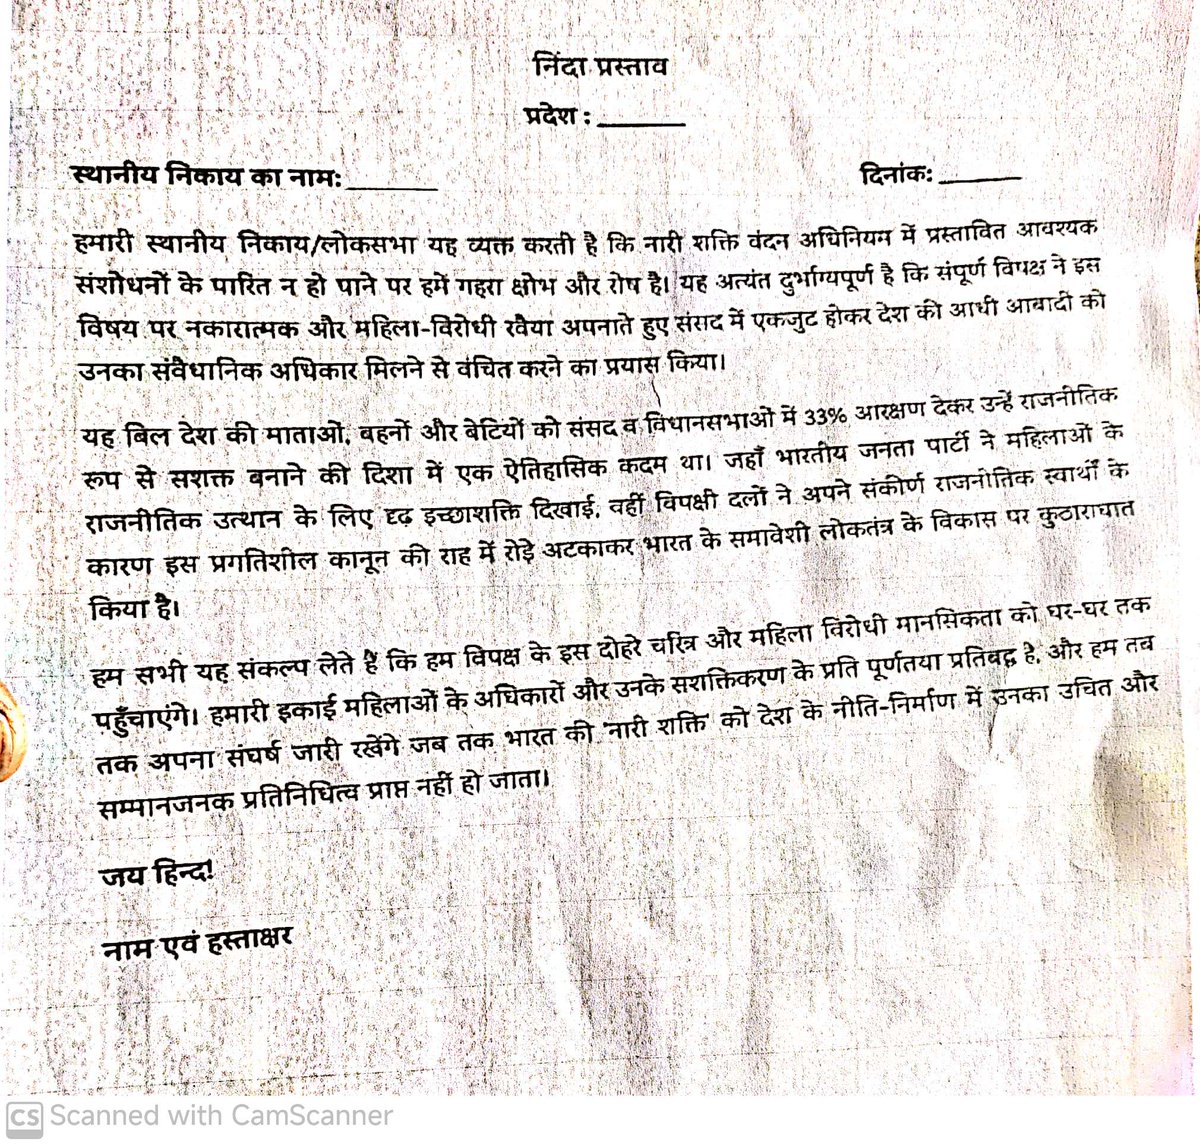 निंदा प्रस्ताव
प्रदेश : ______
स्थानीय निकाय का नाम: ______ दिनांक: ______
हमारी स्थानीय निकाय/लोकसभा यह व्यक्त करती है कि नारी शक्ति वंदन अधिनियम में प्रस्तावित आवश्यक
संशोधनों के पारित न हो पाने पर हमें गहरा क्षोभ और रोष है। यह अत्यंत दुर्भाग्यपूर्ण है कि संपूर्ण विपक्ष ने इस
विषय पर नकारात्मक और महिला-विरोधी रवैया अपनाते हुए संसद में एकजुट होकर देश की आधी आबादी को
उनका संवैधानिक अधिकार मिलने से वंचित करने का प्रयास किया।
यह बिल देश की माताओं, बहनों और बेटियों को संसद व विधानसभाओं में 33% आरक्षण देकर उन्हें राजनीतिक
रूप से सशक्त बनाने की दिशा में एक ऐतिहासिक कदम था। जहाँ भारतीय जनता पार्टी ने महिलाओं के
राजनीतिक उत्थान के लिए दृढ़ इच्छाशक्ति दिखाई, वहीं विपक्षी दलों ने अपने संकीर्ण राजनीतिक स्वार्थों के
कारण इस प्रगतिशील कानून की राह में रोड़े अटकाकर भारत के समावेशी लोकतंत्र के विकास पर कुठाराघात
किया है।
हम सभी यह संकल्प लेते हैं कि हम विपक्ष के इस दोहरे चरित्र और महिला विरोधी मानसिकता को घर-घर तक
पहुँचाएंगे। हमारी इकाई महिलाओं के अधिकारों और उनके सशक्तिकरण के प्रति पूर्णतया प्रतिबद्ध है, और हम तब
तक अपना संघर्ष जारी रखेंगे जब तक भारत की 'नारी शक्ति' को देश के नीति-निर्माण में उनका उचित और
सम्मानजनक प्रतिनिधित्व प्राप्त नहीं हो जाता।
जय हिन्द!
नाम एवं हस्ताक्षर
CS Scanned with CamScanner